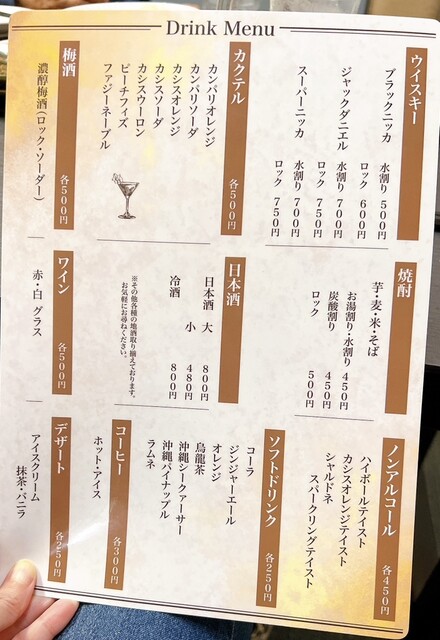 Drink Menu
ウイスキー
ブラックニッカ
水割り 500円
ロック 600円
ジャックダニエル
水割り 700円
ロック 750円
スーパーニッカ
水割り 700円
ロック 750円
カクテル 各500円
カンパリオレンジ
カンパリソーダ
カシスオレンジ
カシスソーダ
カシスウーロン
ピーチフィズ
ファジーネーブル
梅酒 各500円
濃醇梅酒(ロック・ソーダー)
焼酎
芋・麦・米・そば
お湯割り・水割り 450円
炭酸割り 450円
ロック 500円
日本酒
日本酒 大 800円
小 480円
冷酒 800円
※その他各種の地酒取り揃えております。
お気軽にお尋ねください。
ワイン 各500円
赤・白 グラス
ノンアルコール 各450円
ハイボールテイスト
カシスオレンジテイスト
シャルドネ
スパークリングテイスト
ソフトドリンク 各250円
コーラ
ジンジャーエール
オレンジ
烏龍茶
沖縄シークァーサー
沖縄パイナップル
ラムネ
コーヒー 各300円
ホット・アイス
デザート 各250円
アイスクリーム
抹茶・バニラ